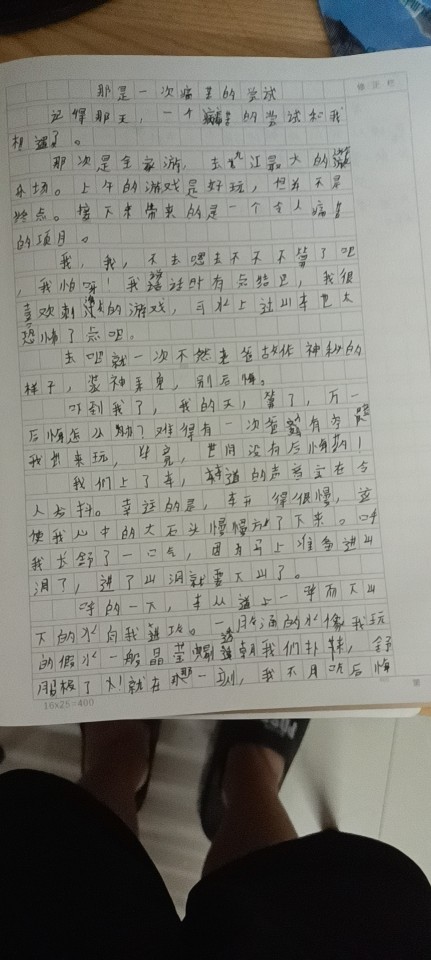 那是一次痛苦的尝试
记得那天,一个痛苦的尝试和我
相遇了。
那次是全家游,去九江最大的游
乐场。上午的游戏是好玩,但并不是
终点。接下来带来的是一个令人痛苦
的项目。
我,我,不去嗯去不不不算了吧
,我怕呀!我说话时有点结巴,我很
喜欢刺激的游戏,可水上过山车也太
恐怖了点吧。
去吧就一次不然老爸故作神秘的
样子,装神弄鬼,别后悔。
吓到我了,我的天,算了,万一
后悔怎么办?难得有一次爸爸有空
我出来玩,毕竟,世间没有后悔药!
我们上了车,轨道的声音实在令
人发抖。幸运的是,车开得很慢,这
使我心中的大石头慢慢放了下来。呼
我长舒了一口气,因为马上准备进山
洞了,进了山洞就要下山了。
哗的一下,车从道上一冲而下山
下的水向我进攻。的水像我玩
的假水一般晶莹朝我们扑来,舒
服极了!就在那一刻,我不用吃后悔
16x25=400